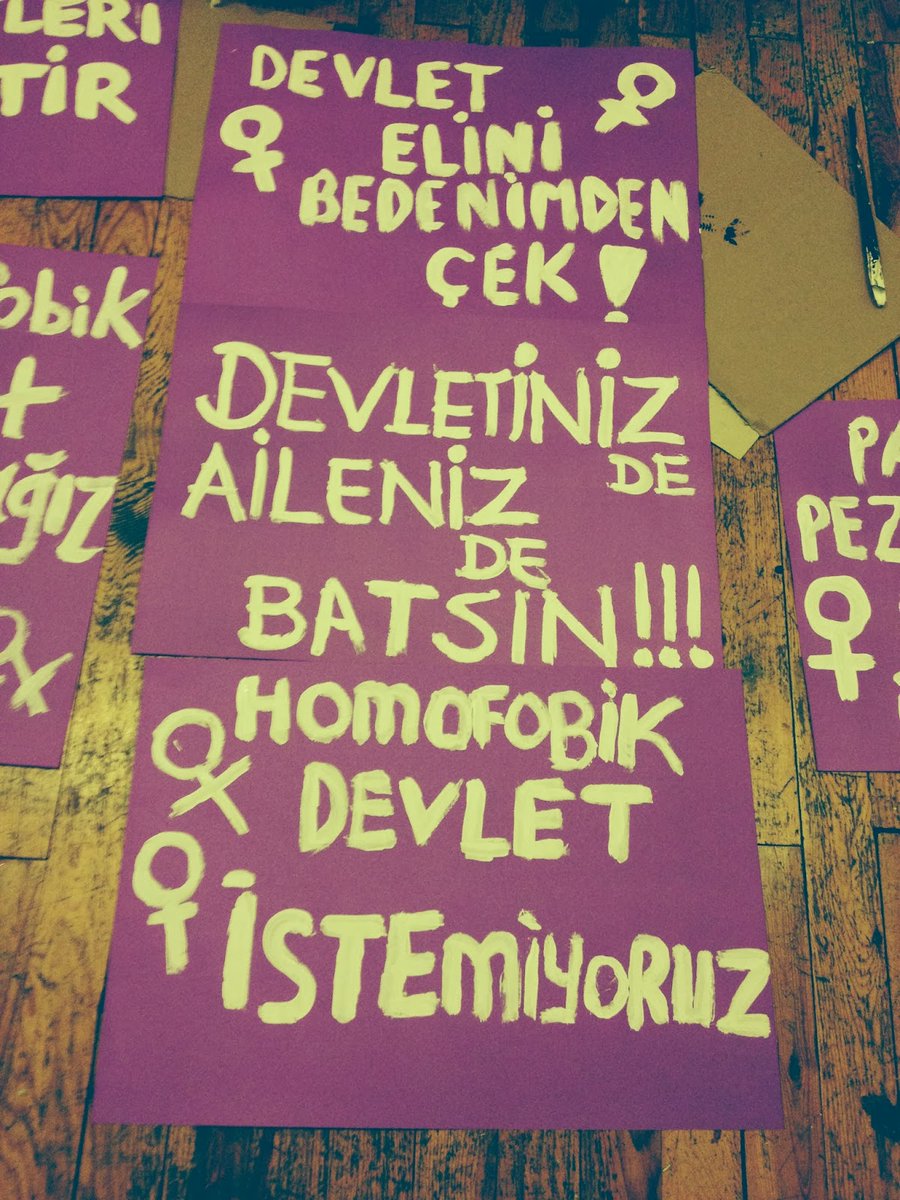 DEVLET
ELİNİ
BEDENİMDEN
ÇEK!
DEVLETİNİZ
DE
AİLENİZ
DE
BATSIN!!!
HOMOFOBİK
DEVLET
İSTEMİYORUZ
LERİ
TİR
obik
+
ğız
PA
PEZ